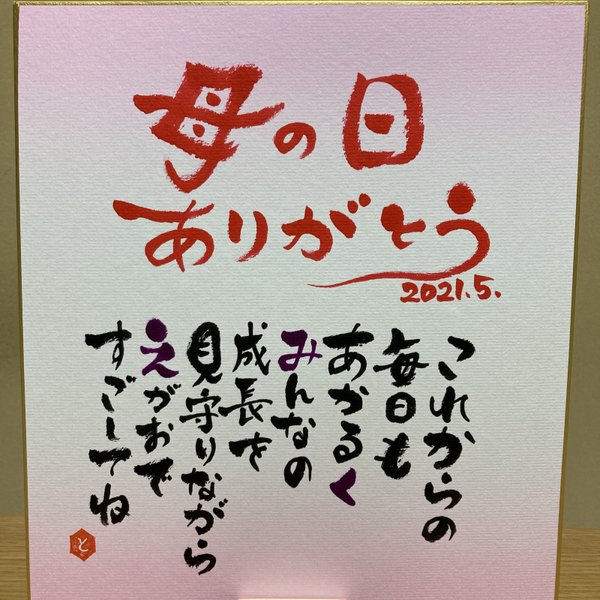 母の日
ありがとう
2021.5.
これからの
毎日も
あかるく
みんなの
成長を
見守りながら
えがおで
すごしてね
と